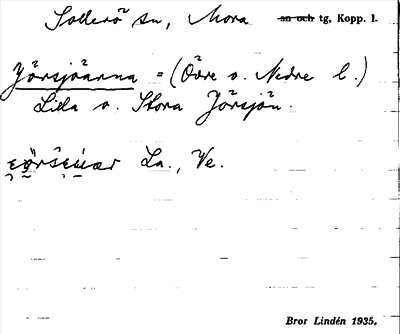 Sollerö sn, Mora sn och tg, Kopp. l.
Jörsjöarna = (Övre o. Nedre l.)
Lilla o. Stora Jörsjön.
La., Ve.
Bror Lindén 1935.